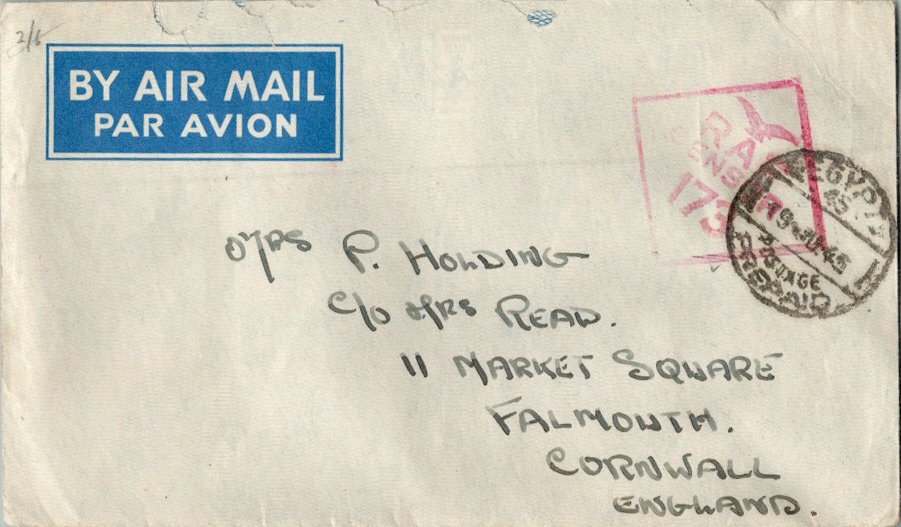 2/6
BY AIR MAIL
PAR AVION
RAF
CENSOR
173
EGYPT
45
POSTAGE
PREPAID
Mrs P. HOLDING
C/O Mrs READ.
11 MARKET SQUARE
FALMOUTH.
CORNWALL
ENGLAND.